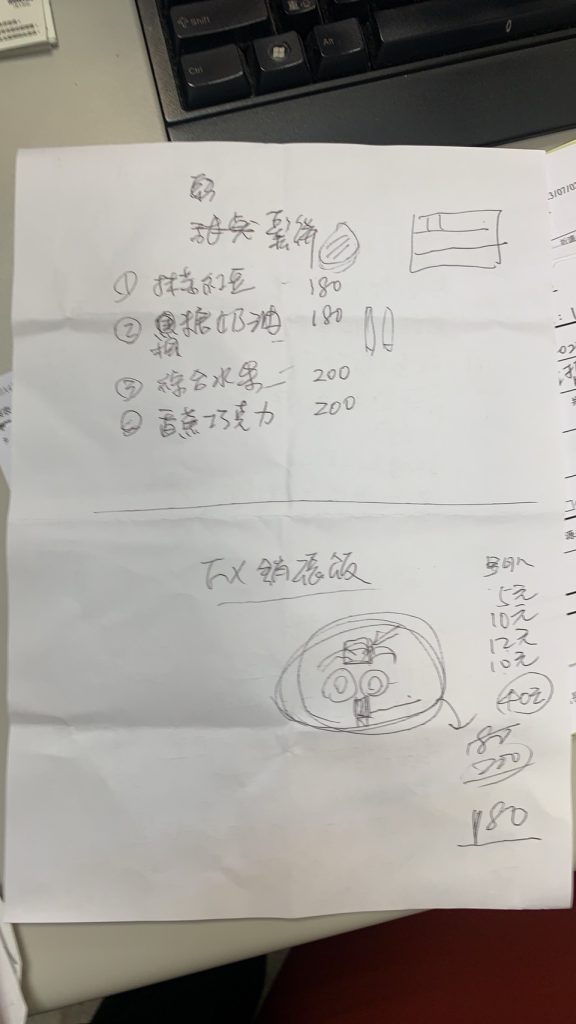 Shift
Ctrl
Alt
鬆餅
① 抹茶紅豆 - 180
② 糖奶油 180
③ 綜合水果 - 200
④ 香蕉巧克力 200
銷魂飯
5元
10元
12元
10元
40元
180
200
180